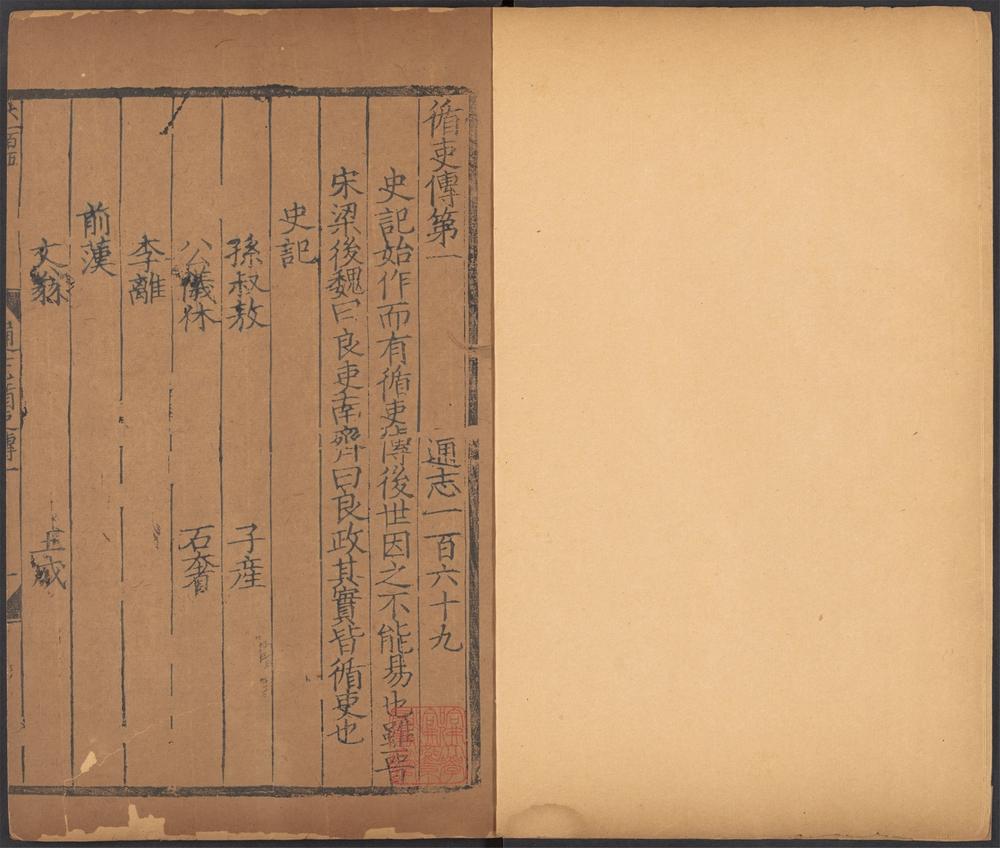 循吏傳第一 通志一百六十九
史記始作而有循吏傳後世因之不能易也雖晉
宋梁後魏曰良吏南齊曰良政其實皆循吏也
史記
孫叔敖 子産
公儀休 石奢
李離
前漢
文翁 王成